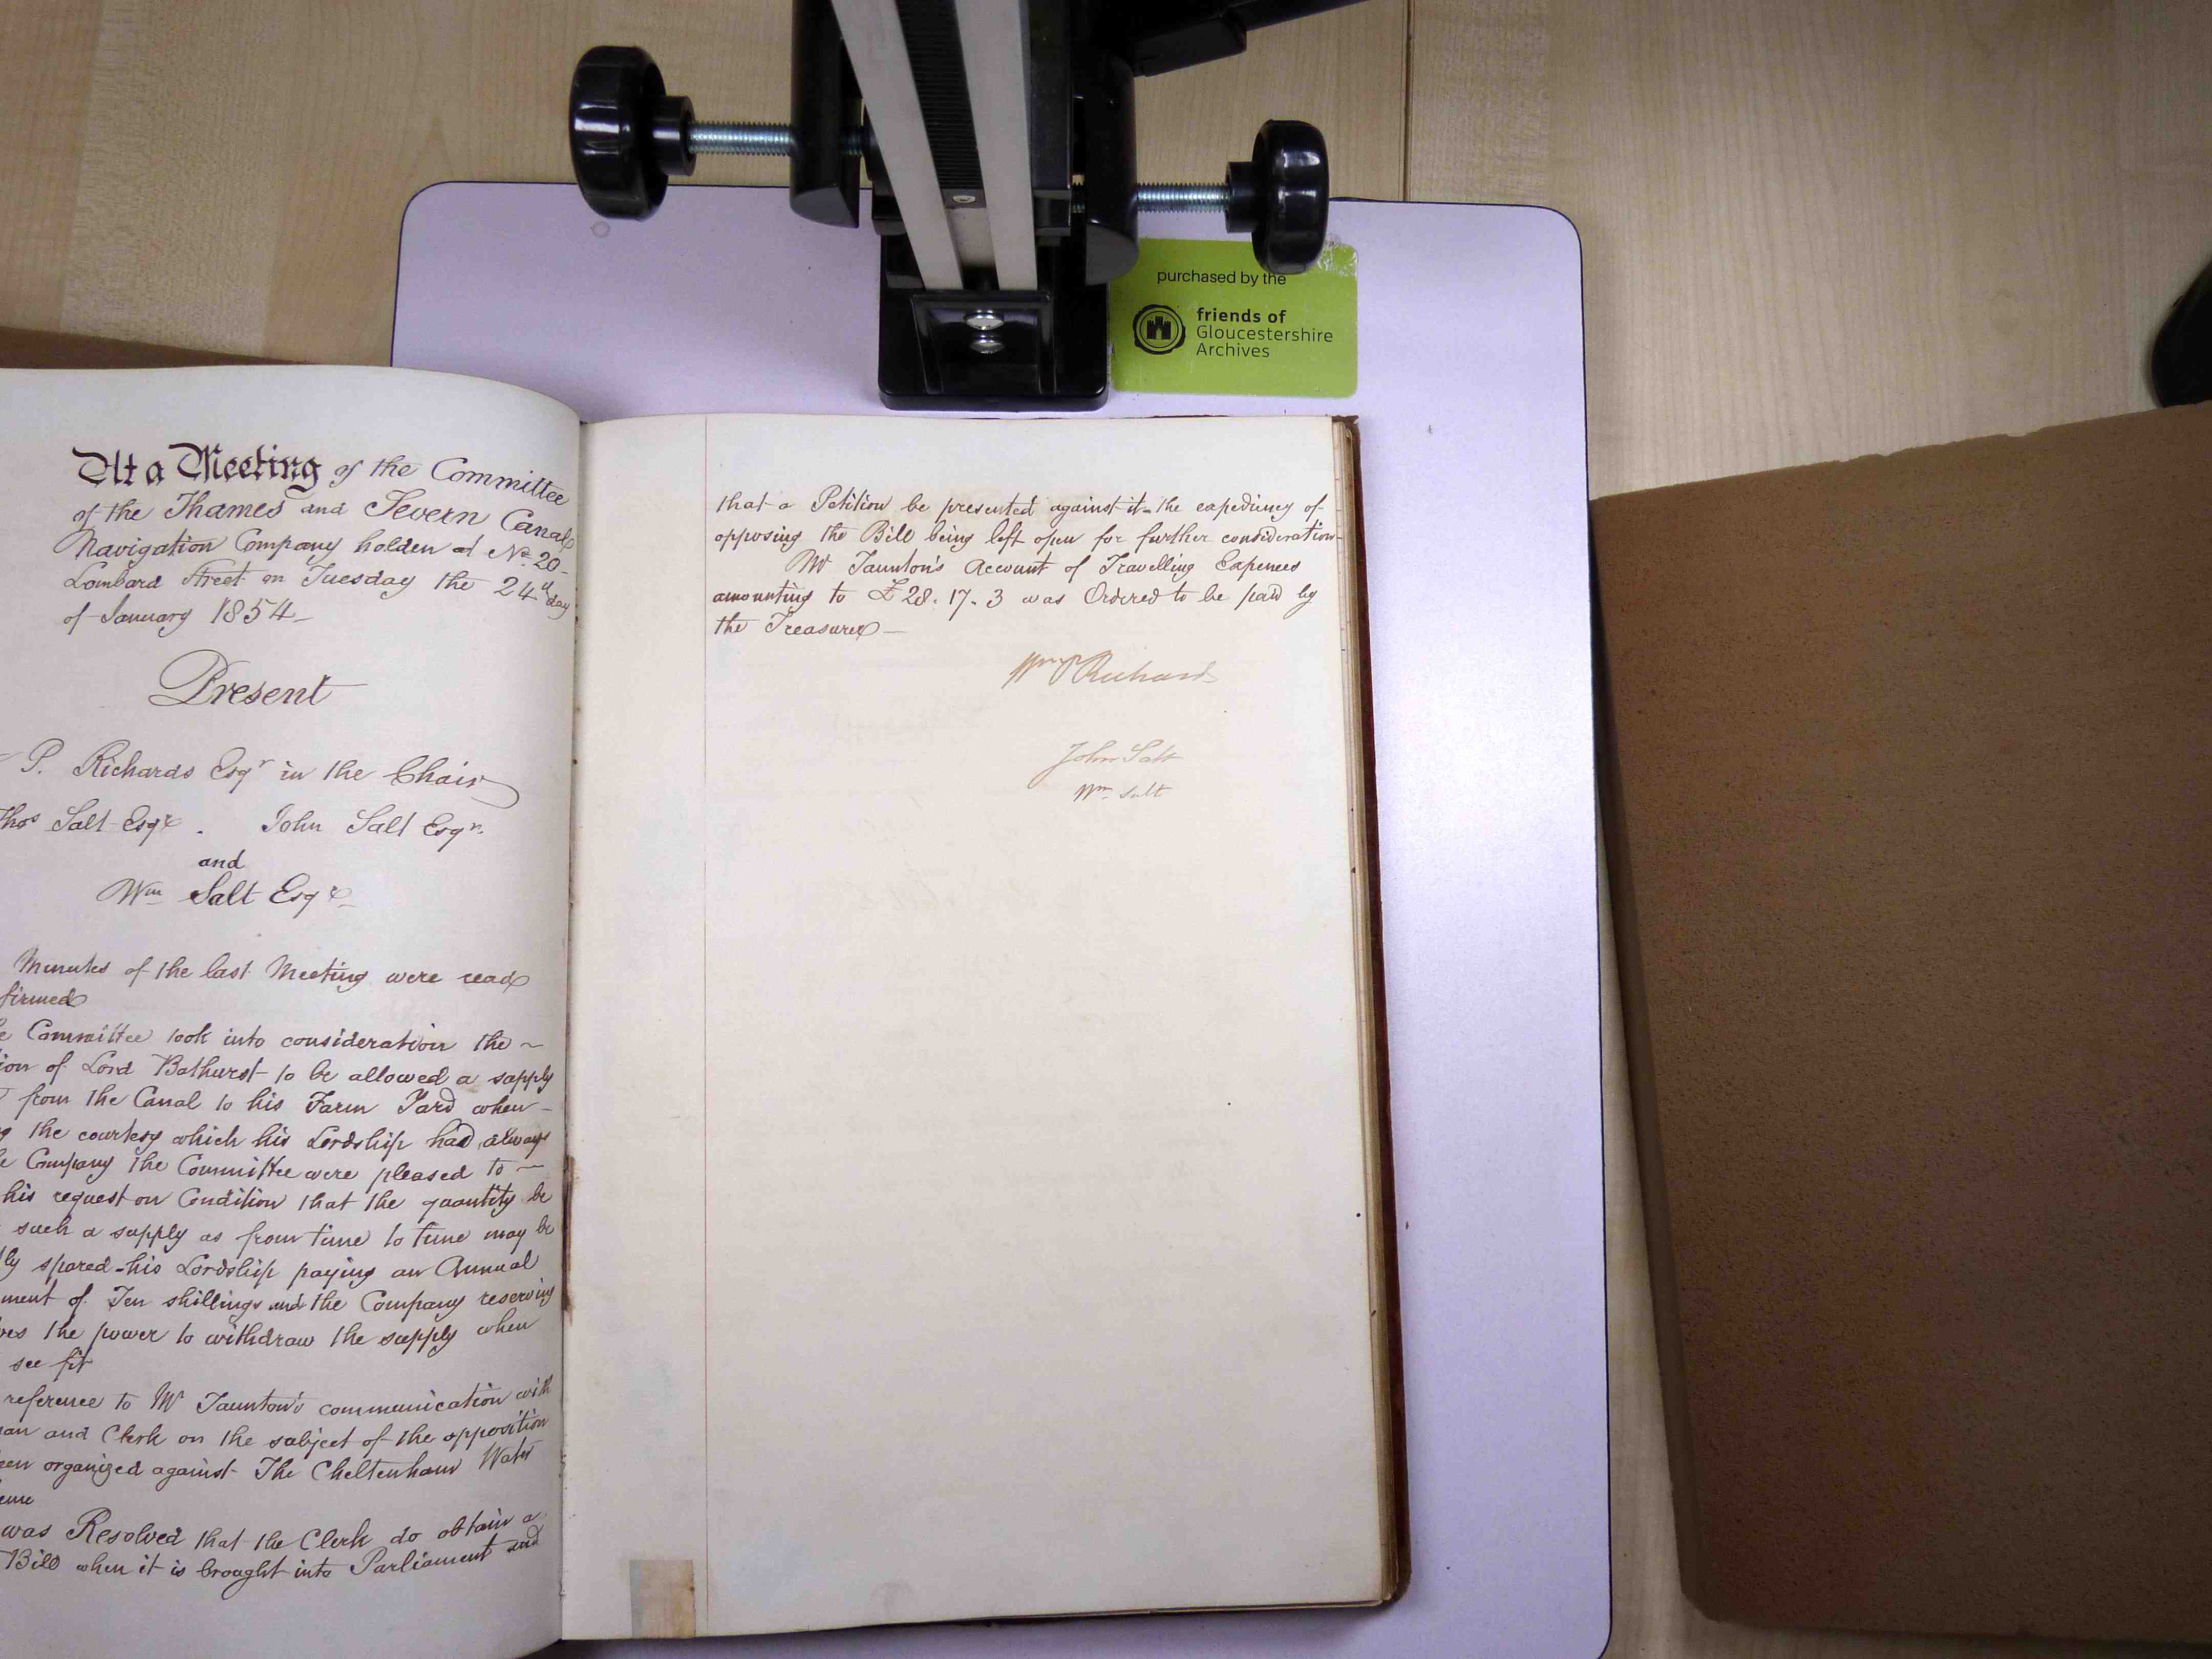 purchased by the
friends of
Gloucestershire
Archives
At a Meeting of the Committee
of the Thames and Severn Canal
Navigation Company holden at No. 20
Lombard Street on Tuesday the 24th day
of January 1854
Present
P. Richards Esqr in the Chair
Thos Salt Esqr . John Salt Esqr.
and
Wm Salt Esqr
Minutes of the last Meeting were read
firmed
Committee took into consideration the ~
ion of Lord Bathurst to be allowed a supply
from the Canal to his Farm Yard when
the courtesy which his Lordship had always
Company the Committee were pleased to ~
his request on Condition that the quantity be
such a supply as from time to time may be
ly spared - his Lordship paying an Annual
ment of Ten shillings and the Company reserving
ves the power to withdraw the supply when
see fit
reference to Mr Taunton's communication with
an and Clerk on the subject of the opposition
een organized against The Cheltenham Water
eme
was Resolved that the Clerk do obtain a
Bill when it is brought into Parliament and
that a Petition be presented against it - the expediency of
opposing the Bill being left open for further consideration
Mr Taunton's Account of Travelling Expences
amounting to £28. 17. 3 was Ordered to be paid by
the Treasurer
Wm P Richards
John Salt
Wm Salt